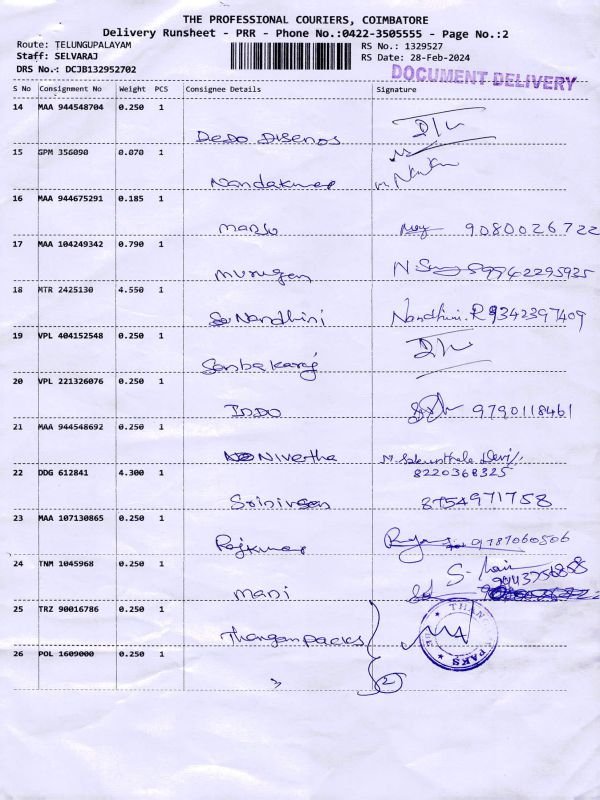 THE PROFESSIONAL COURIERS, COIMBATORE
Delivery Runsheet - PRR - Phone No.:0422-3505555 - Page No.:2
Route: TELUNGUPALAYAM
RS No.: 1329527
Staff: SELVARAJ
RS Date: 28-Feb-2024
DRS No.: DCJB132952702
DOCUMENT DELIVERY
S No Consignment No Weight PCS Consignee Details Signature
14 MAA 944548704 0.250 1
DEDO DISENOS
15 GPM 356090 0.070 1
Nandakumar
16 MAA 944675291 0.185 1
manju 9080026722
17 MAA 104249342 0.790 1
murugan
18 MTR 2425130 4.550 1
Nandhini Nandhini.R 9342397409
19 VPL 404152548 0.250 1
20 VPL 221326076 0.250 1
INDO 9790118461
21 MAA 944548692 0.250 1
Nivertha
8220368325
22 DDG 612841 4.300 1
8754971758
23 MAA 107130865 0.250 1
Rajkumar 9787060506
24 TNM 1045968 0.250 1
mani
25 TRZ 90016786 0.250 1
Thangam packs
THAN
PAKS
26 POL 1609000 0.250 1
"
2